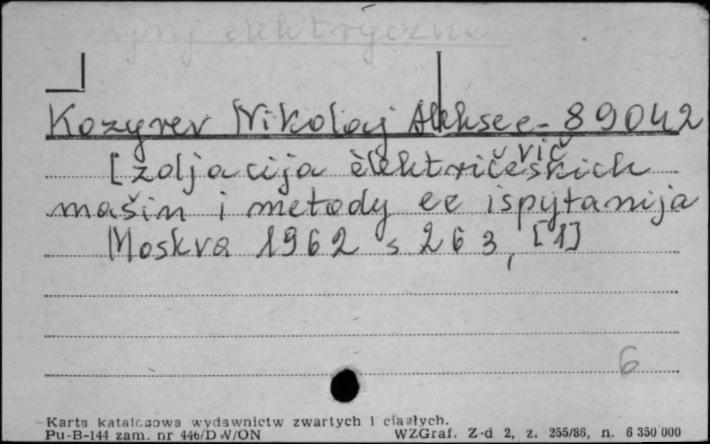 elektryczne
Kozyrev Nikolaj Aleksee- 89042
vič
Izoljacija èlektričeskich
mašin i metody ee ispytanija
Moskva 1962 s 263, [1]
6
Karta katalogowa wydawnictw zwartych i ciągłych.
Pu-B-144 zam. nr 446/DW/ON WZGraf. Z-d 2, z. 255/86, n. 6 350 000